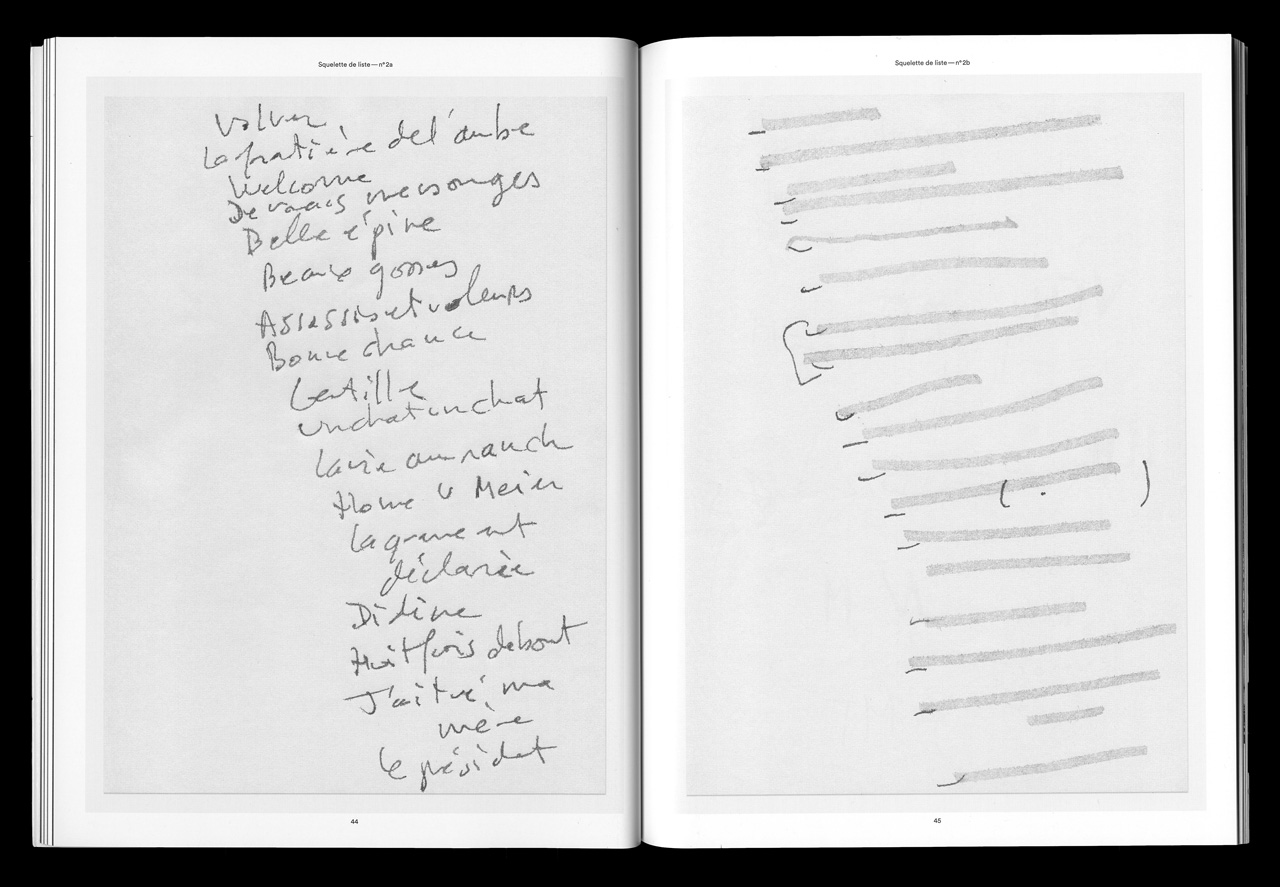 Squelette de liste — n°2a
Volver
La frontière de l'aube
Welcome
De vrais mensonges
Belle épine
Beaux gosses
Assassins et voleurs
Bonne chance
Gentille
un chat un chat
La vie au ranch
Home U Meier
La guerre est
déclarée
Didine
Huit fois debout
J'ai tué ma
mère
Le président
44
Squelette de liste — n°2b
( . )
45